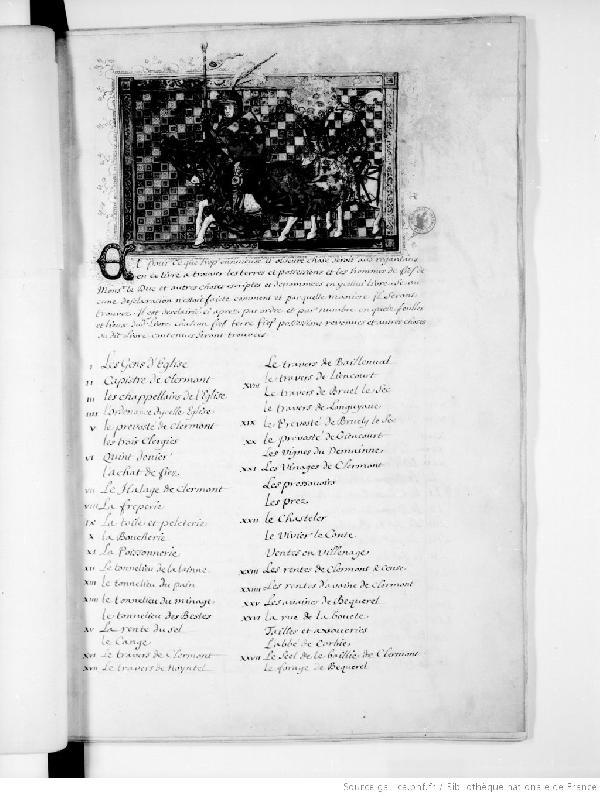 Et pour ce que trop ennuieuse et obscure chose seroit aux regardans
en ce livre a trouver les terres et possessions et les hommes de fief de
Mons.r le Duc et autres choses escriptes et denommees en ycellui livre se au-
cune desclaracion n'estoit faicte comment et par quelle maniere Il seront
trouvez. Il est desclairié cy apres par ordre et par nombre en quelz foeulles
et lieux dud. Livre chascun fief terre fief possessions revenues et autres choses
ou dit livre contenues seront trouvees
I Les Gens d'Eglise
II Capistre de Clermont
III les chappellains de l'Eglise
IIII l'ordenance dycelle Eglise
V le prevosté de Clermont
les trois Clergies
VI Quint denier
l'achat de fiez
VII Le Halage de Clermont
VIII La freperie
IX La toile et peleterie
X La Boucherie
XI La Poissonnerie
XII Le tonnelieu de la laine
XIII le tonnelieu du pain
XIIII le tonnelieu du minage
le tonnelieu des Bestes
XV La rente du sel
le Cange
XVI Le travers de Clermont
XVII Le travers de Noyntel
Le travers de Bailleuval
XVIII le travers de Liencourt
Le travers de Bruel le Sec
le travers de Longueyaue
XIX Le Prevosté de Bruely le Sec
XX Le prevosté de Sitacourt
Les vignes du Demainne
XXI Les Vinages de Clermont
Les pressouoirs
Les prez
XXII le Chasteler
Le Vivier le Conte
Ventes en Villenage
XXIII Les rentes de Clermont a Cense
XXIIII Les rentes d'avaine de Clermont
XXV Les avaines de Bequerel
XXVI La rue de la boucte
Tailles et assoueries
L'abbé de Corbie
XXVII Le Seel de la baillie de Clermont
le forage de Bequerel
Source gallica.bnf.fr / Bibliothèque nationale de France